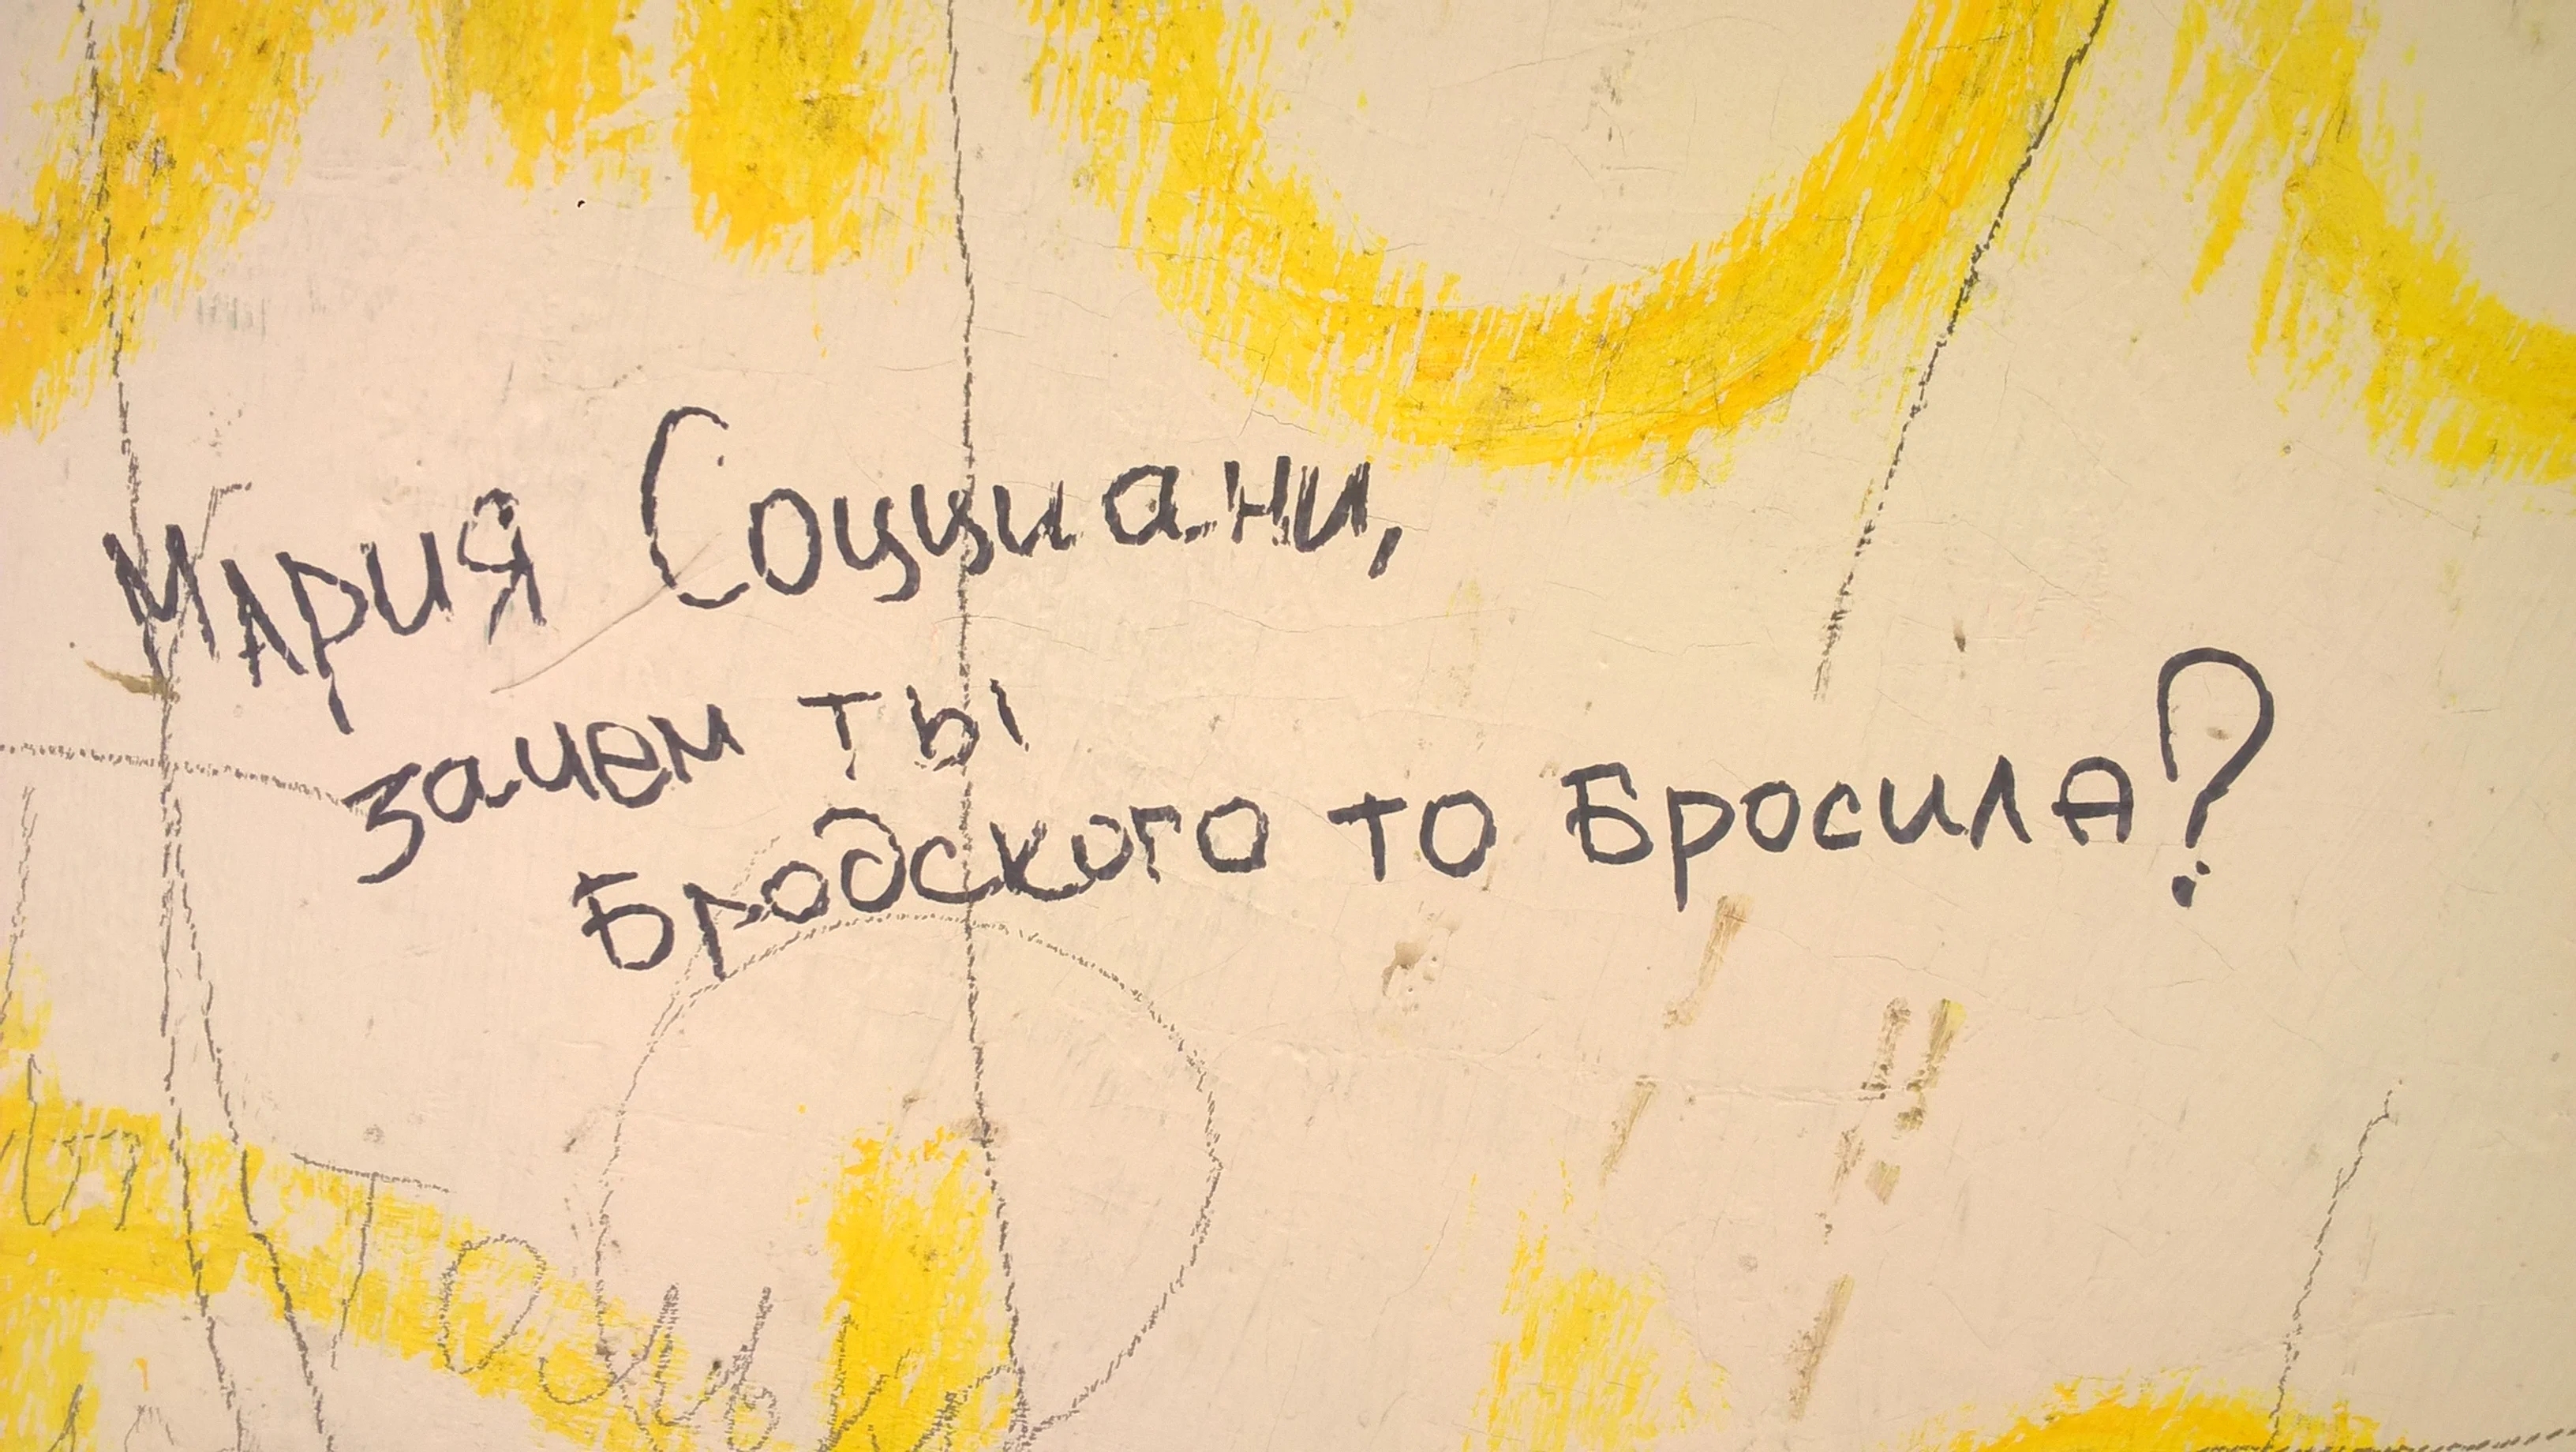 Мария Социани,
зачем ты
Бродского то Бросила?